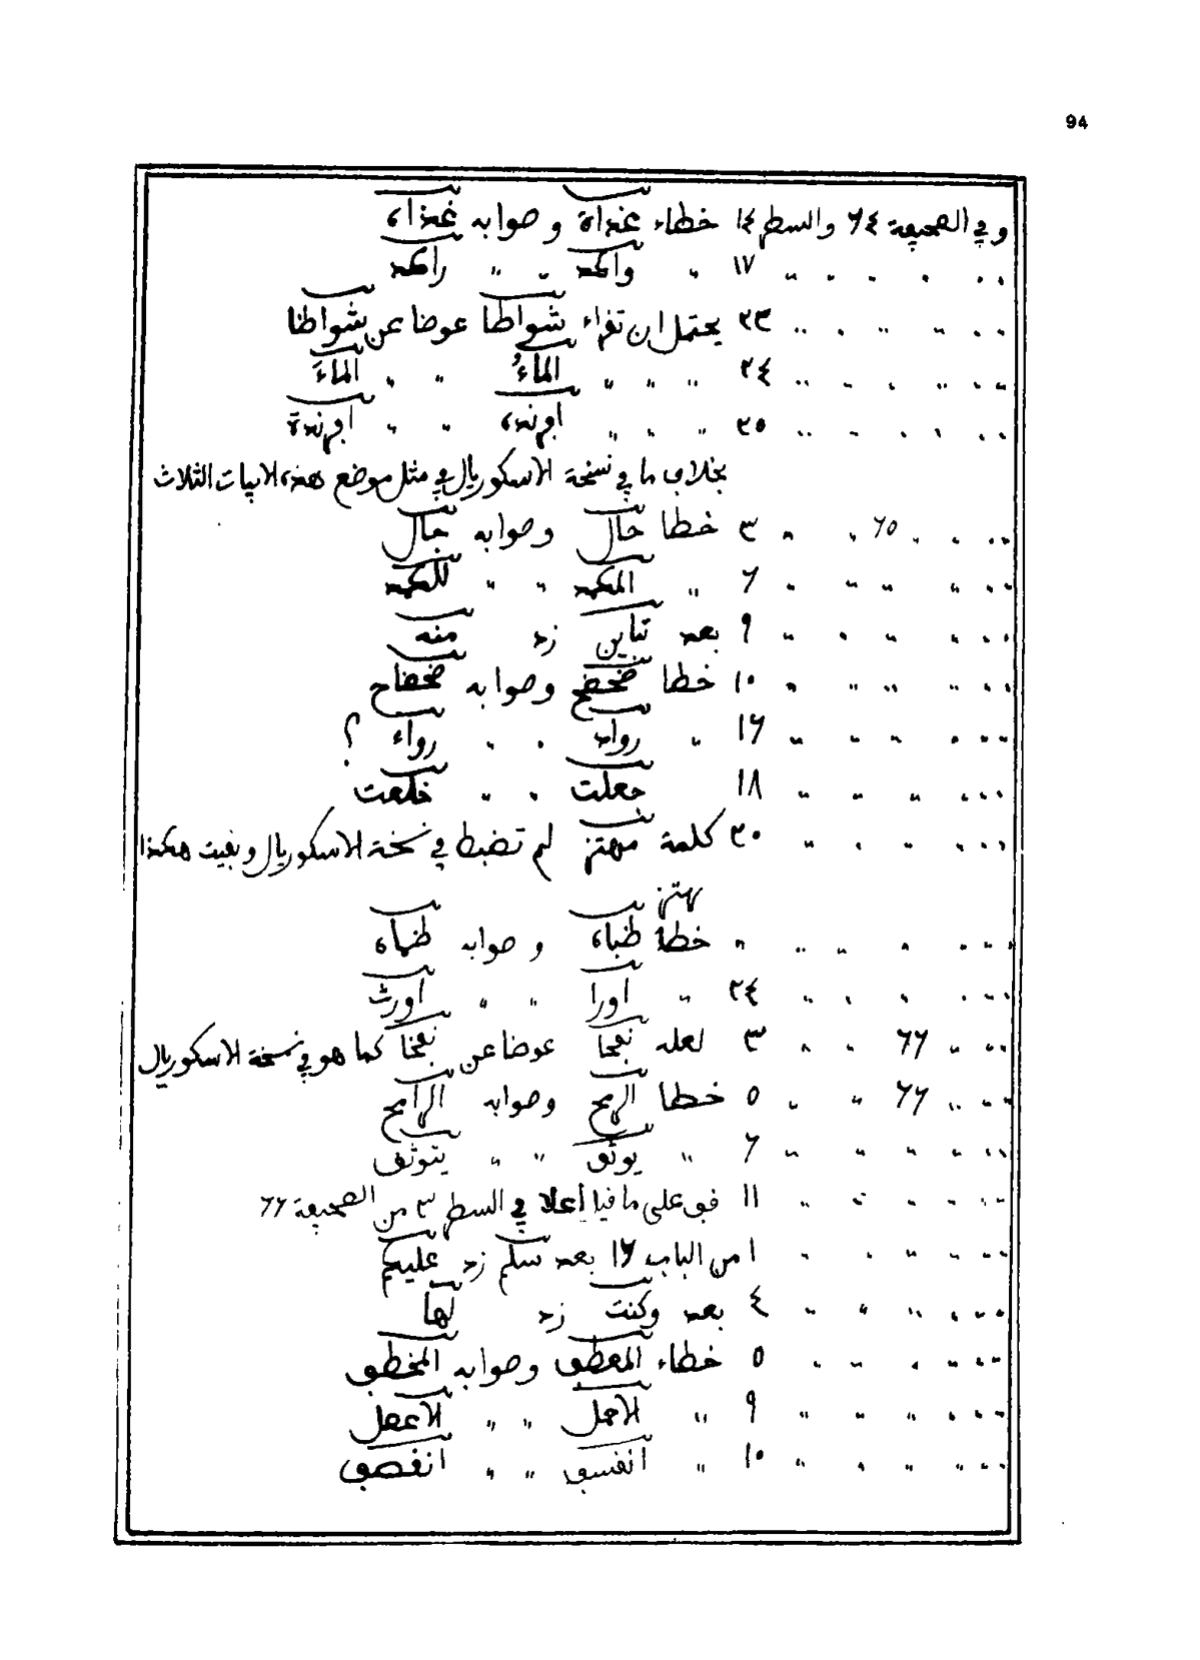 94
وفي الصحيفة ٦٤ والسطر ١٤ خطاء غداة وصوابه غذاء
" " " " " " ١٧ " واكد " " راكد
" " " " " " ٢٣ يحتمل ان تقراء شواطا عوضا عن شواظا
" " " " " " ٢٤ " " " " الماءُ " " الماءَ
" " " " " " ٢٥ " " " "
بخلاف ما في نسخة الاسكوريال في مثل موضع هذه الابيات الثلاث
" " " " ٦٥ " " ٣ خطا حال وصوابه جال
" " " " " " ٦ " " "
" " " " " " ٩ بعد تباين زد منه
" " " " " " ١٠ خطا ضحضح وصوابه ضحضاح
" " " " " " ١٦ " رواه " " رواء ؟
" " " " " " ١٨ جعلت " " خلعت
" " " " " " ٢٠ كلمة مهتز لم تضبط في نسخة الاسكوريال وبقيت هكذا
بهتز
" " " " " " " خطا ظباه وصوابه ظماه
" " " " " " ٢٤ " اورا " " اورث
" " " ٦٦ " " ٣ لعله نفحا عوضا عن نفخا كما هو في نسخة الاسكوريال
" " " ٦٦ " " ٥ خطا الرمح وصوابه الرامح
" " " " " " ٦ " يوثق " " يتوثق
" " " " " " ١١ فق على ما قيل أعلا في السطر ٣ من الصحيفة ٦٦
" " " " " " ١ من الباب ١٦ بعد سلم زد عليكم
" " " " " " ٤ بعد وكنت زد لها
" " " " " " ٥ خطاء المعطف وصوابه المخطف
" " " " " " ٩ " الاجل " "
" " " " " " ١٠ " انفسق " " انفصق